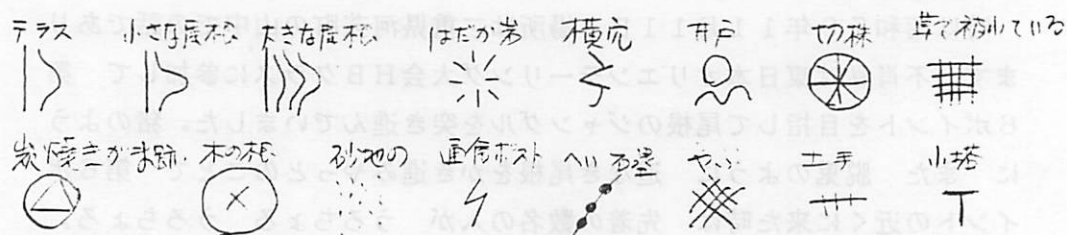 テラス 小さな尾根 大きな尾根 はだか岩 横穴 井戸 切株 草で覆われている
炭焼きがま跡 木の根 砂地の 連合ポスト へい 石塁 やぶ 土手 小塔